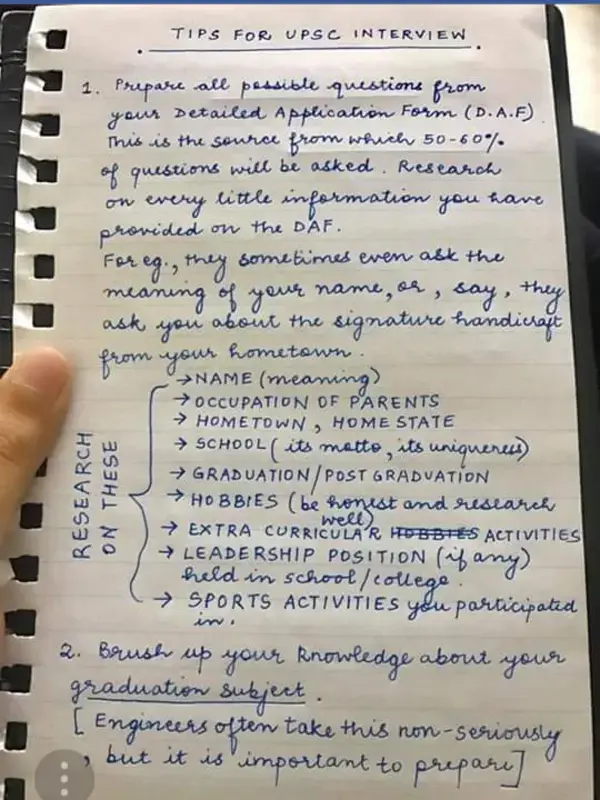 TIPS FOR UPSC INTERVIEW
1. Prepare all possible questions from
your Detailed Application Form (D.A.F)
This is the source from which 50-60%
of questions will be asked. Research
on every little information you have
provided on the DAF.
For eg., they sometimes even ask the
meaning of your name, or, say, they
ask you about the signature handicraft
from your hometown.
RESEARCH
ON THESE
→ NAME (meaning)
→ OCCUPATION OF PARENTS
→ HOMETOWN, HOME STATE
→ SCHOOL (its motto, its uniqueness)
→ GRADUATION/POST GRADUATION
→ HOBBIES (be honest and research
well)
→ EXTRA CURRICULAR HOBBIES ACTIVITIES
→ LEADERSHIP POSITION (if any)
held in school/college.
→ SPORTS ACTIVITIES you participated
in.
2. Brush up your knowledge about your
graduation subject.
[ Engineers often take this non-seriously
, but it is important to prepare]